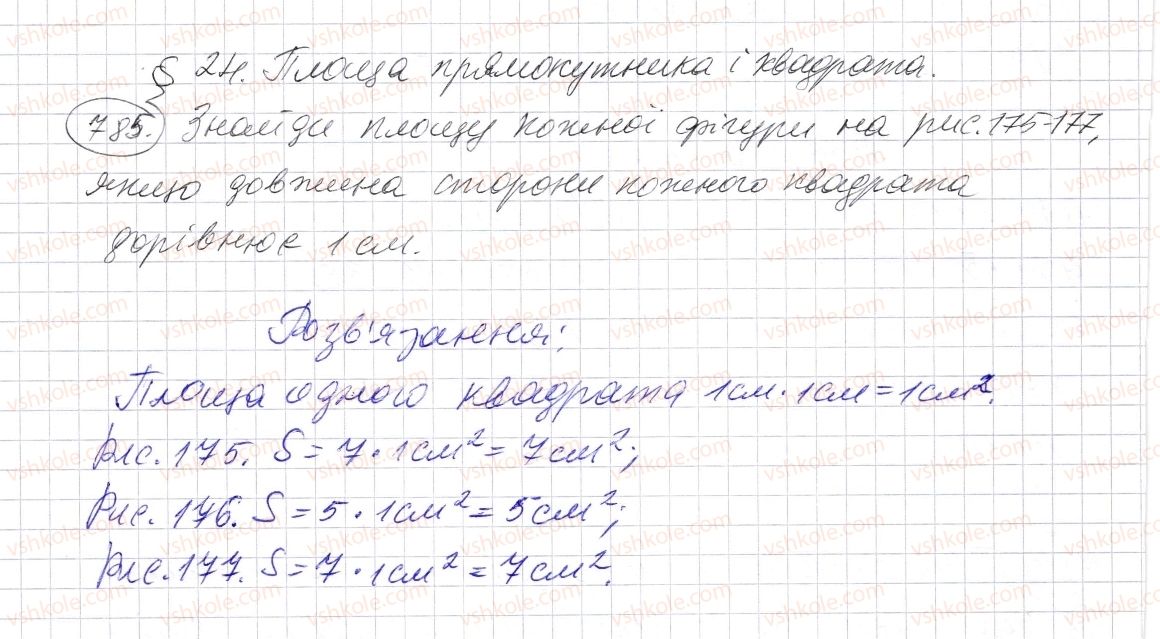 § 24. Площа прямокутника і квадрата.
785. Знайди площу кожної фігури на рис. 175-177,
якщо довжина сторони кожного квадрата
дорівнює 1 см.
Розв'язання:
Площа одного квадрата 1см · 1см = 1см².
Рис. 175. S = 7 · 1см² = 7см²;
Рис. 176. S = 5 · 1см² = 5см²;
Рис. 177. S = 7 · 1см² = 7см².
vshkole.com